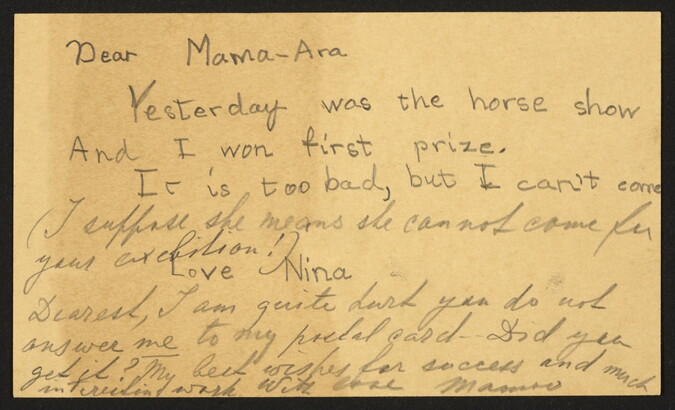 Dear Mama-Ara
Yesterday was the horse show
And I won first prize.
It is too bad, but I can't come
(I suppose she means she cannot come for
your exhibition!)
Love Nina
Dearest, I am quite hurt you do not
answer me to my postal card - Did you
get it? My best wishes for success and much
interesting work. With love